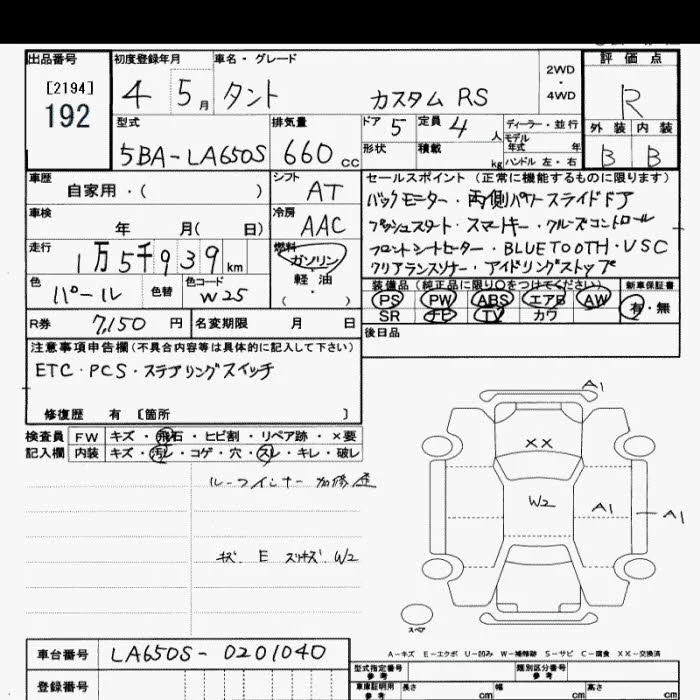 出品番号
[2194]
192
初度登録年月
4 5月
車名・グレード
タント カスタム RS
2WD
・
4WD
評価点
R
外装 内装
B B
型式
5BA-LA650S
排気量
660cc
ドア
5
定員
4人
形状
積載
kg
ディーラー・並行
モデル
年式 年
ハンドル 左・右
車歴
自家用・( )
シフト
AT
車検
年 月( 日)
冷房
AAC
走行
1万5千939km
燃料
ガソリン
軽・油
(・)
色
パール
色替
色コード
W25
R券
7,150円
名変期限 月 日
セールスポイント(正常に機能するものに限ります)
バックモニター・両側パワースライドドア
プッシュスタート・スマートキー・クルーズコントロール
フロントシートヒーター・BLUETOOTH・VSC
クリアランスソナー・アイドリングストップ
装備品(純正品に限り○をつけてください)
PS PW ABS エアB AW
SR ナビ TV カワ
新車保証書
有・無
後日品
注意事項申告欄(不具合内容等は具体的に記入して下さい)
ETC・PCS・ステアリングスイッチ
修復歴 有 [箇所 ]
検査員
記入欄
FW キズ・飛石・ヒビ割・リペア跡・×要
内装 キズ・汚レ・コゲ・穴・スレ・キレ・破レ
ルーフインナー 加修
キズ E W2
A1
XX
W2
A1
A1
スペア
A-キズ E-エクボ U-凹み W-補修跡 S-サビ C-腐食 XX-交換済
車台番号
LA650S-0201040
登録番号
型式指定番号
参考
類別区分番号
参考
車庫証明用
参考
長さ cm
幅 cm
高さ cm